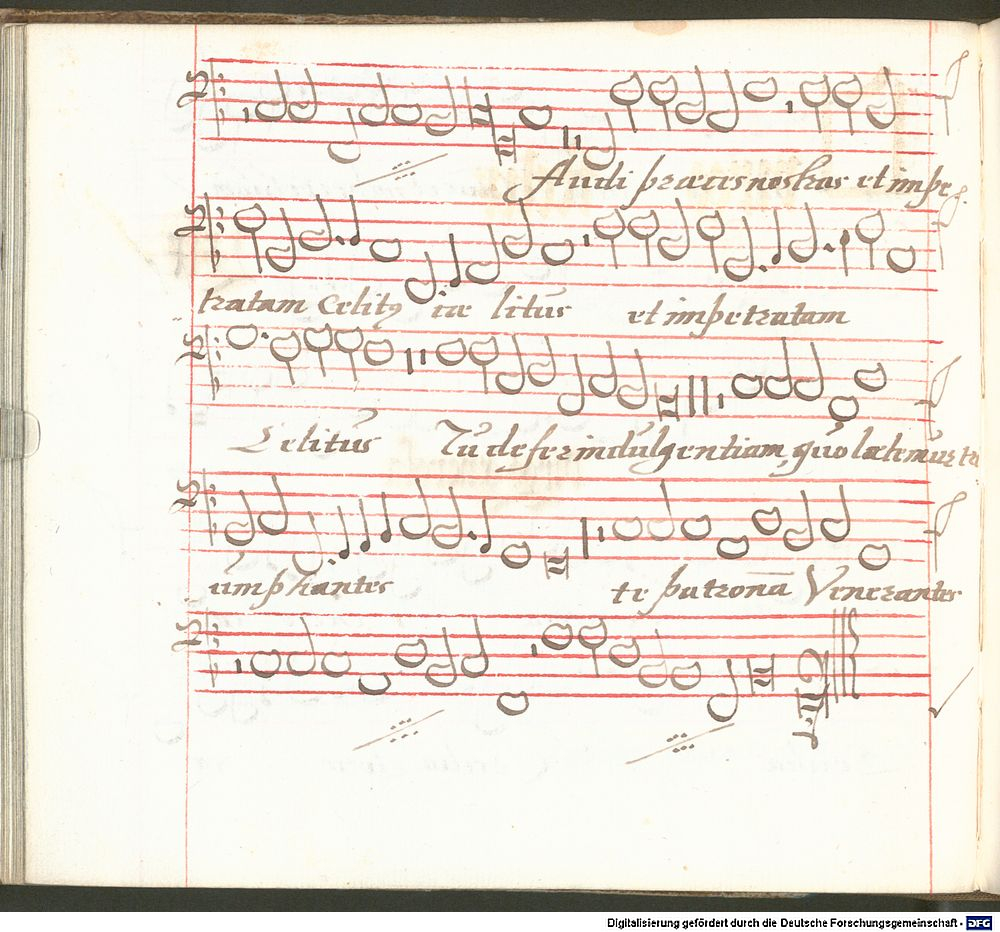 Audi præces nostras et impe
tratam Celitꝰ cæ litus et impetratam
Celitus Tu defer indulgentiam, quo lætemur tri
umphantes te patronā Venerantes
Digitalisierung gefördert durch die Deutsche Forschungsgemeinschaft - DFG